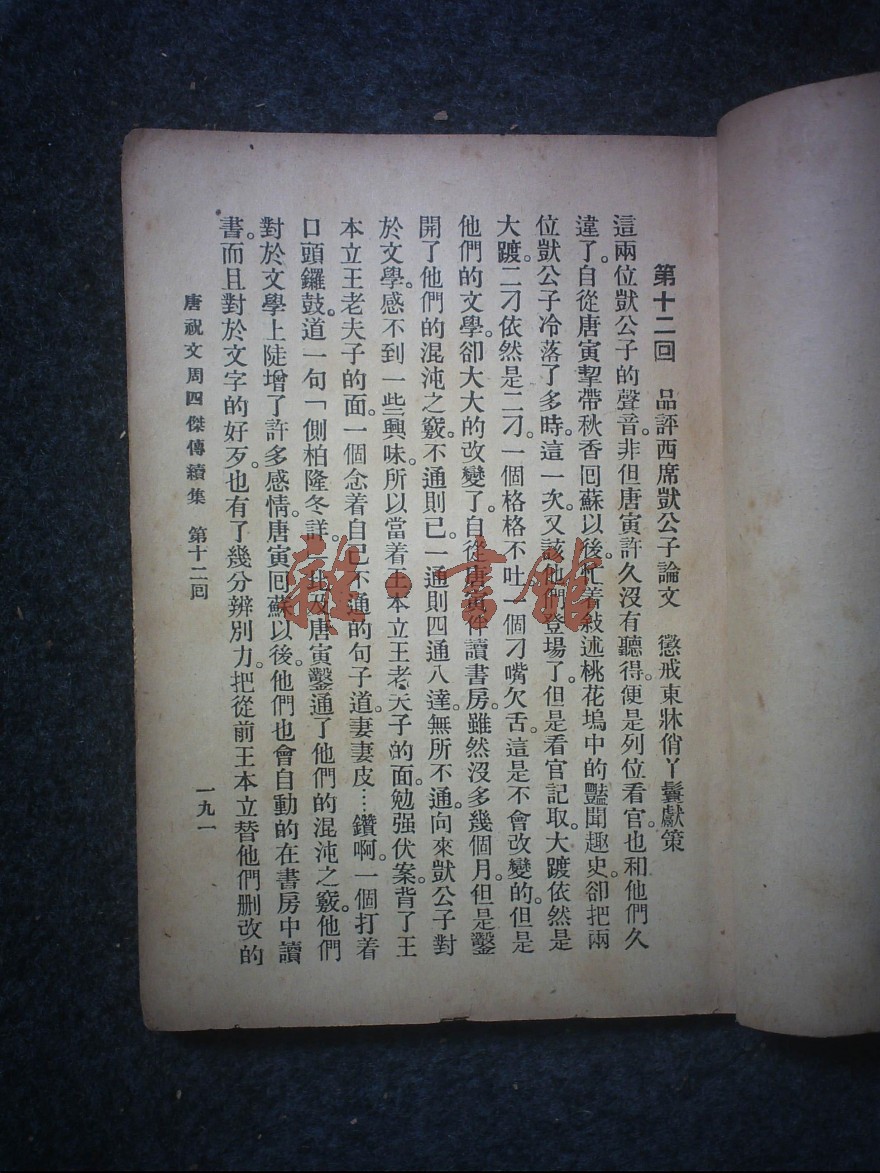 第十二回　品評西席獃公子論文　懲戒東牀俏丫鬟獻策
這兩位獃公子的聲音。非但唐寅許久沒有聽得。便是列位看官。也和他們久
違了。自從唐寅挈帶秋香囘蘇以後。忙着敍述桃花塢中的豔聞趣史。卻把兩
位獃公子冷落了多時。這一次。又該他們登場了。但是看官記取。大踱依然是
大踱。二刁依然是二刁。一個格格不吐。一個刁嘴欠舌。這是不會改變的。但是
他們的文學。卻大大的改變了。自從唐寅伴讀書房。雖然沒多幾個月。但是鑿
開了他們的混沌之竅。不通則已。一通則四通八達。無所不通。向來獃公子對
於文學。感不到一些興味。所以當着王本立王老夫子的面。勉强伏案。背了王
本立王老夫子的面。一個念着自己不通的句子道。妻妻皮…鑽啊。一個打着
口頭鑼鼓。道一句「側柏隆冬詳。」比及唐寅鑿通了他們的混沌之竅。他們
對於文學上陡增了許多感情。唐寅囘蘇以後。他們也會自動的在書房中讀
書。而且對於文字的好歹。也有了幾分辨別力。把從前王本立替他們删改的
唐祝文周四傑傳續集　第十二囘
一九一
雜·書館